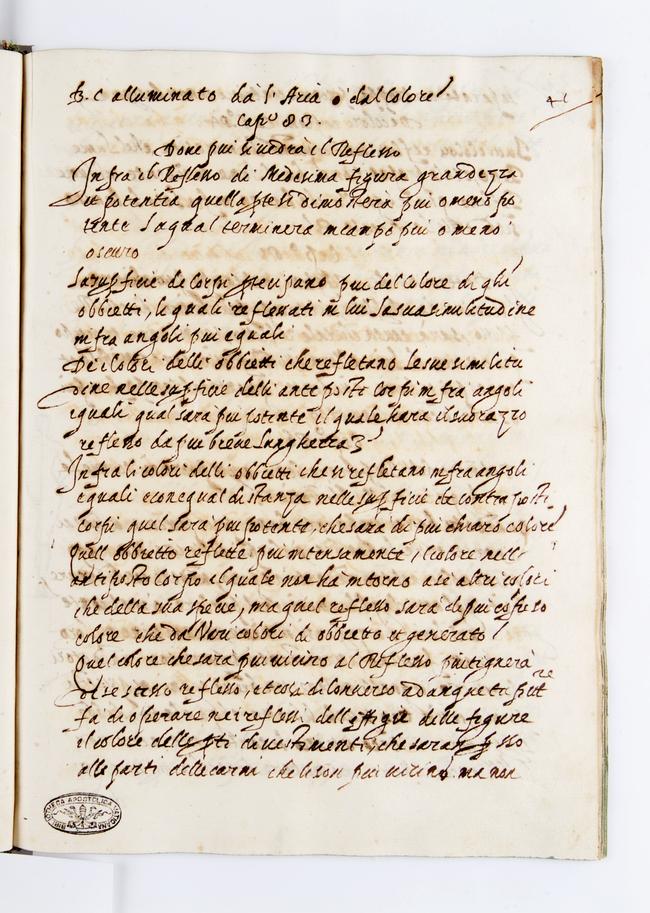 B. C alluminato da l'Aria o dal Colore
41
Cap.º 83.
Dove piu si vedra il Reflesso
Infra il Reflesso di Medesima figura grandezza
et potentia quella parte si dimostrera piu o meno po
tente la qual terminera in campo piu o meno
oscuro
La supficie de Corpi partecipano piu del Colore di gli
obbietti, li quali reflettati in lui la sua similitudine
infra angoli piu equali
De i Colori delli obbietti che refletano le sue similitu
dine nelle supficie delli anteposti Corpi infra angoli
equali qual sara piu potente il quale hara il suo razzo
reflesso da piu brieve lunghezza
Infra li colori delli obbietti che si refletano infra angoli
equali e con equal distanza nelle supficie de contraposti
Corpi quel sara piu potente, che sara di piu chiaro colore
Quell obbietto reflette piu intensamente il colore nell
antiposto Corpo il quale non ha intorno a se altri colori
che della sua specie, ma quel reflesso sara di piu confuso
colore che da Varii colori di obbietto et generato
Quel colore che sara piu vicino al Reflesso piu tignera
di se stesso reflesso, et così di converso adunque tu pitt
re
fa di operare ne i reflessi dell effigie delle figure
il colore delle pti di vestimenti, che saran p sso
alle parti delle carni che le son piu vicine ma non
BIBLIOTHECA APOSTOLICA VATICANA